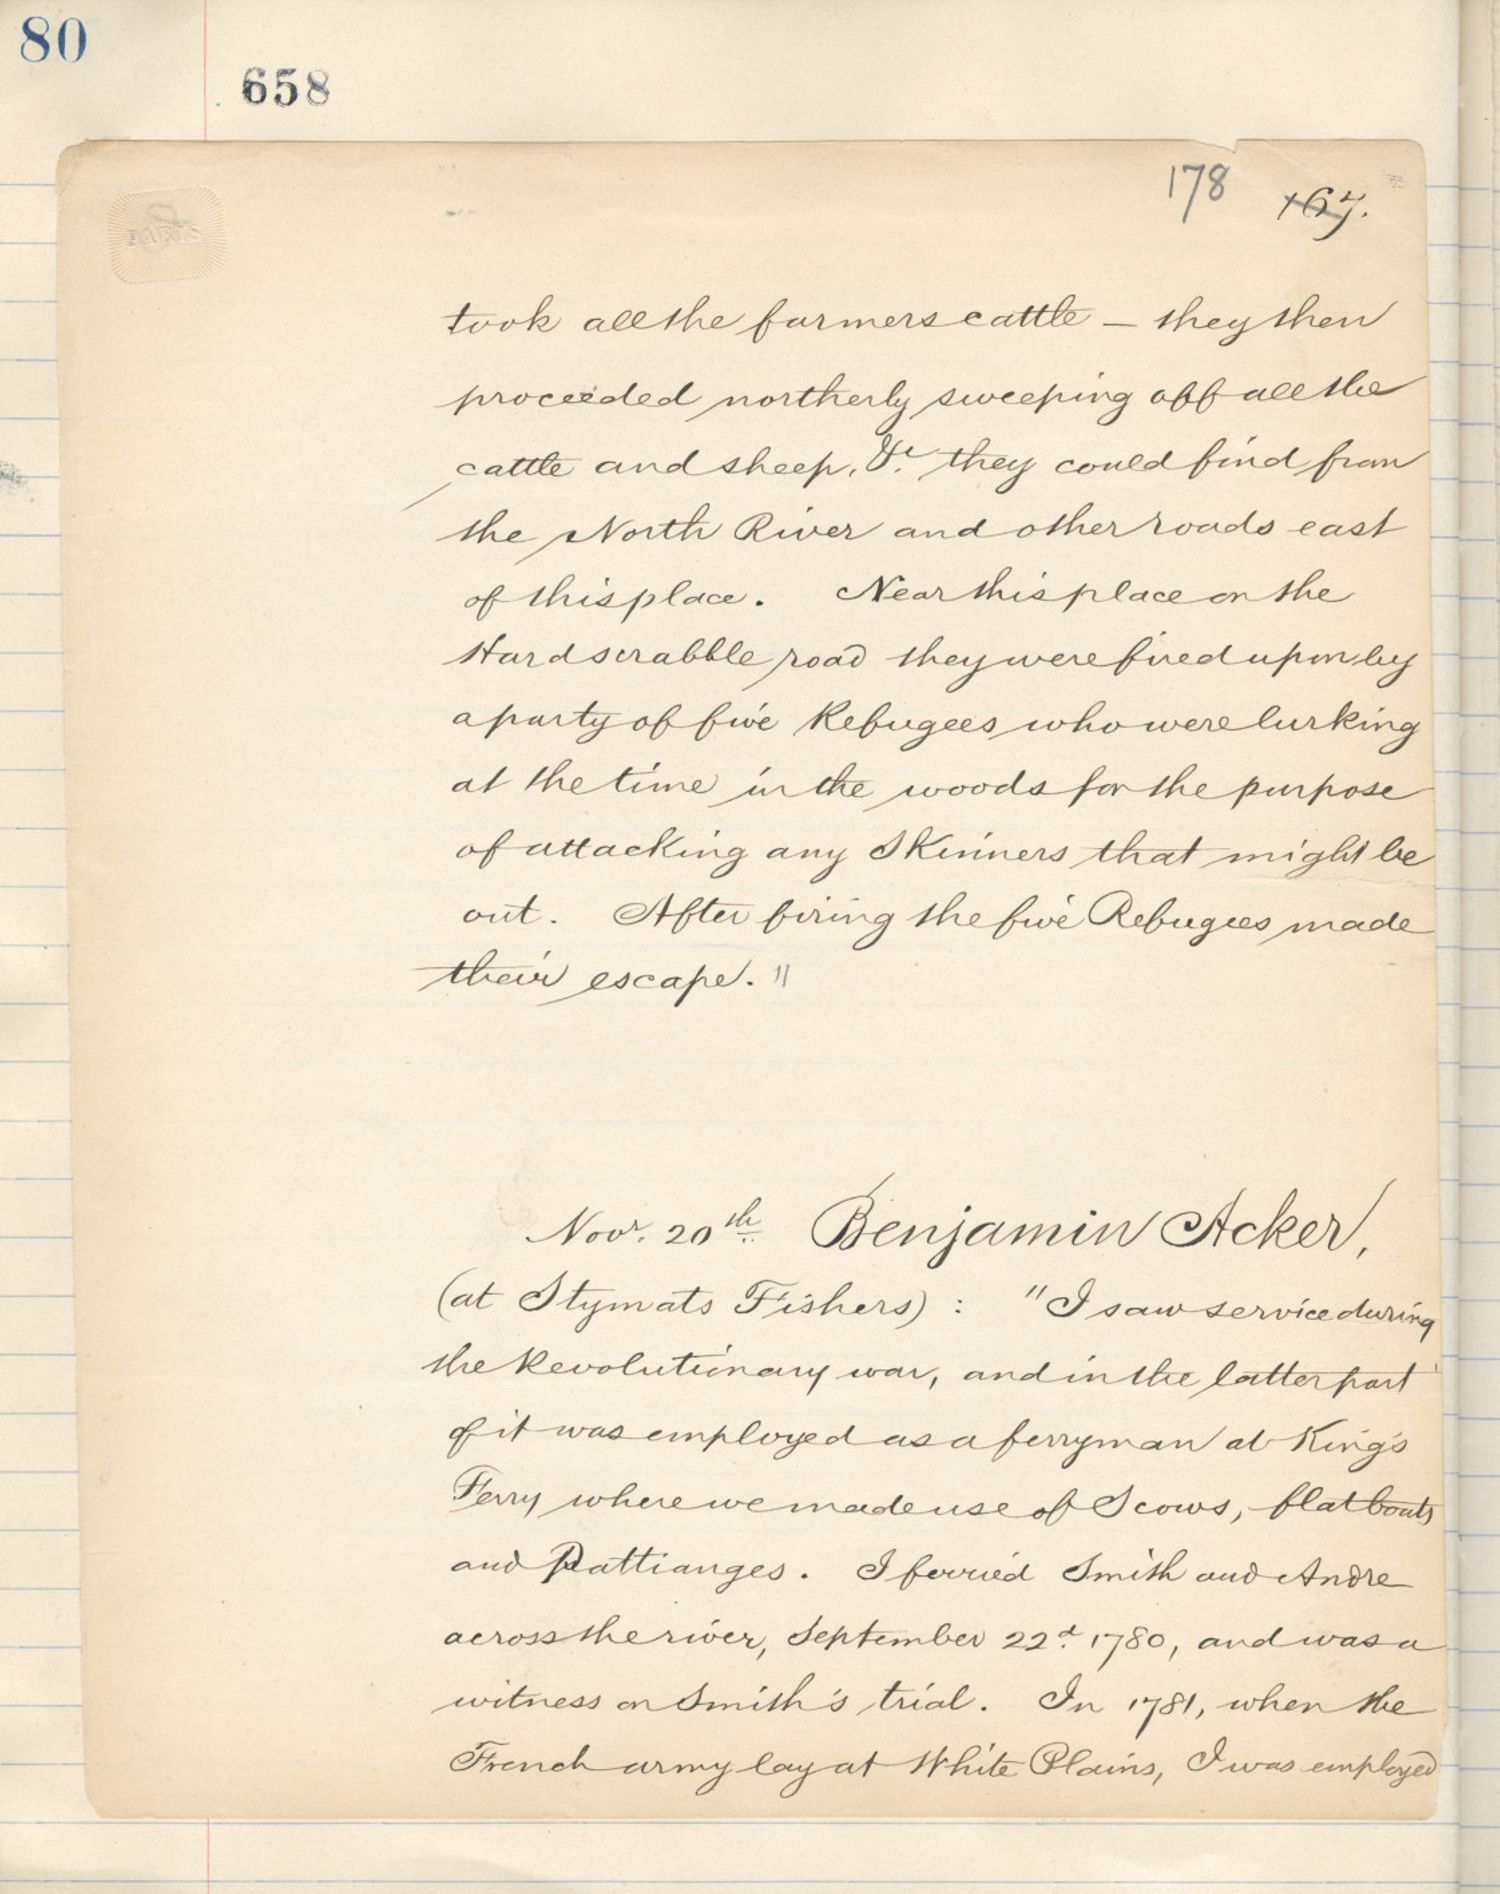 80
658
178 167.
took all the farmers cattle — they then
proceeded northerly sweeping off all the
cattle and sheep, &c. they could find from
the North River and other roads east
of this place. Near this place on the
Hardscrabble road they were fired upon by
a party of five Refugees who were lurking
at the time in the woods for the purpose
of attacking any Skinners that might be
out. After firing the five Refugees made
their escape."
Novr. 20th Benjamin Acker,
(at Stymats Fishers) : "I saw service during
the Revolutionary war, and in the latter part
of it was employed as a ferryman at King's
Ferry where we made use of Scows, flatboats
and Pattianges. I ferried Smith and Andre
across the river, September 22d. 1780, and was a
witness on Smith's trial. In 1781, when the
French army lay at White Plains, I was employed